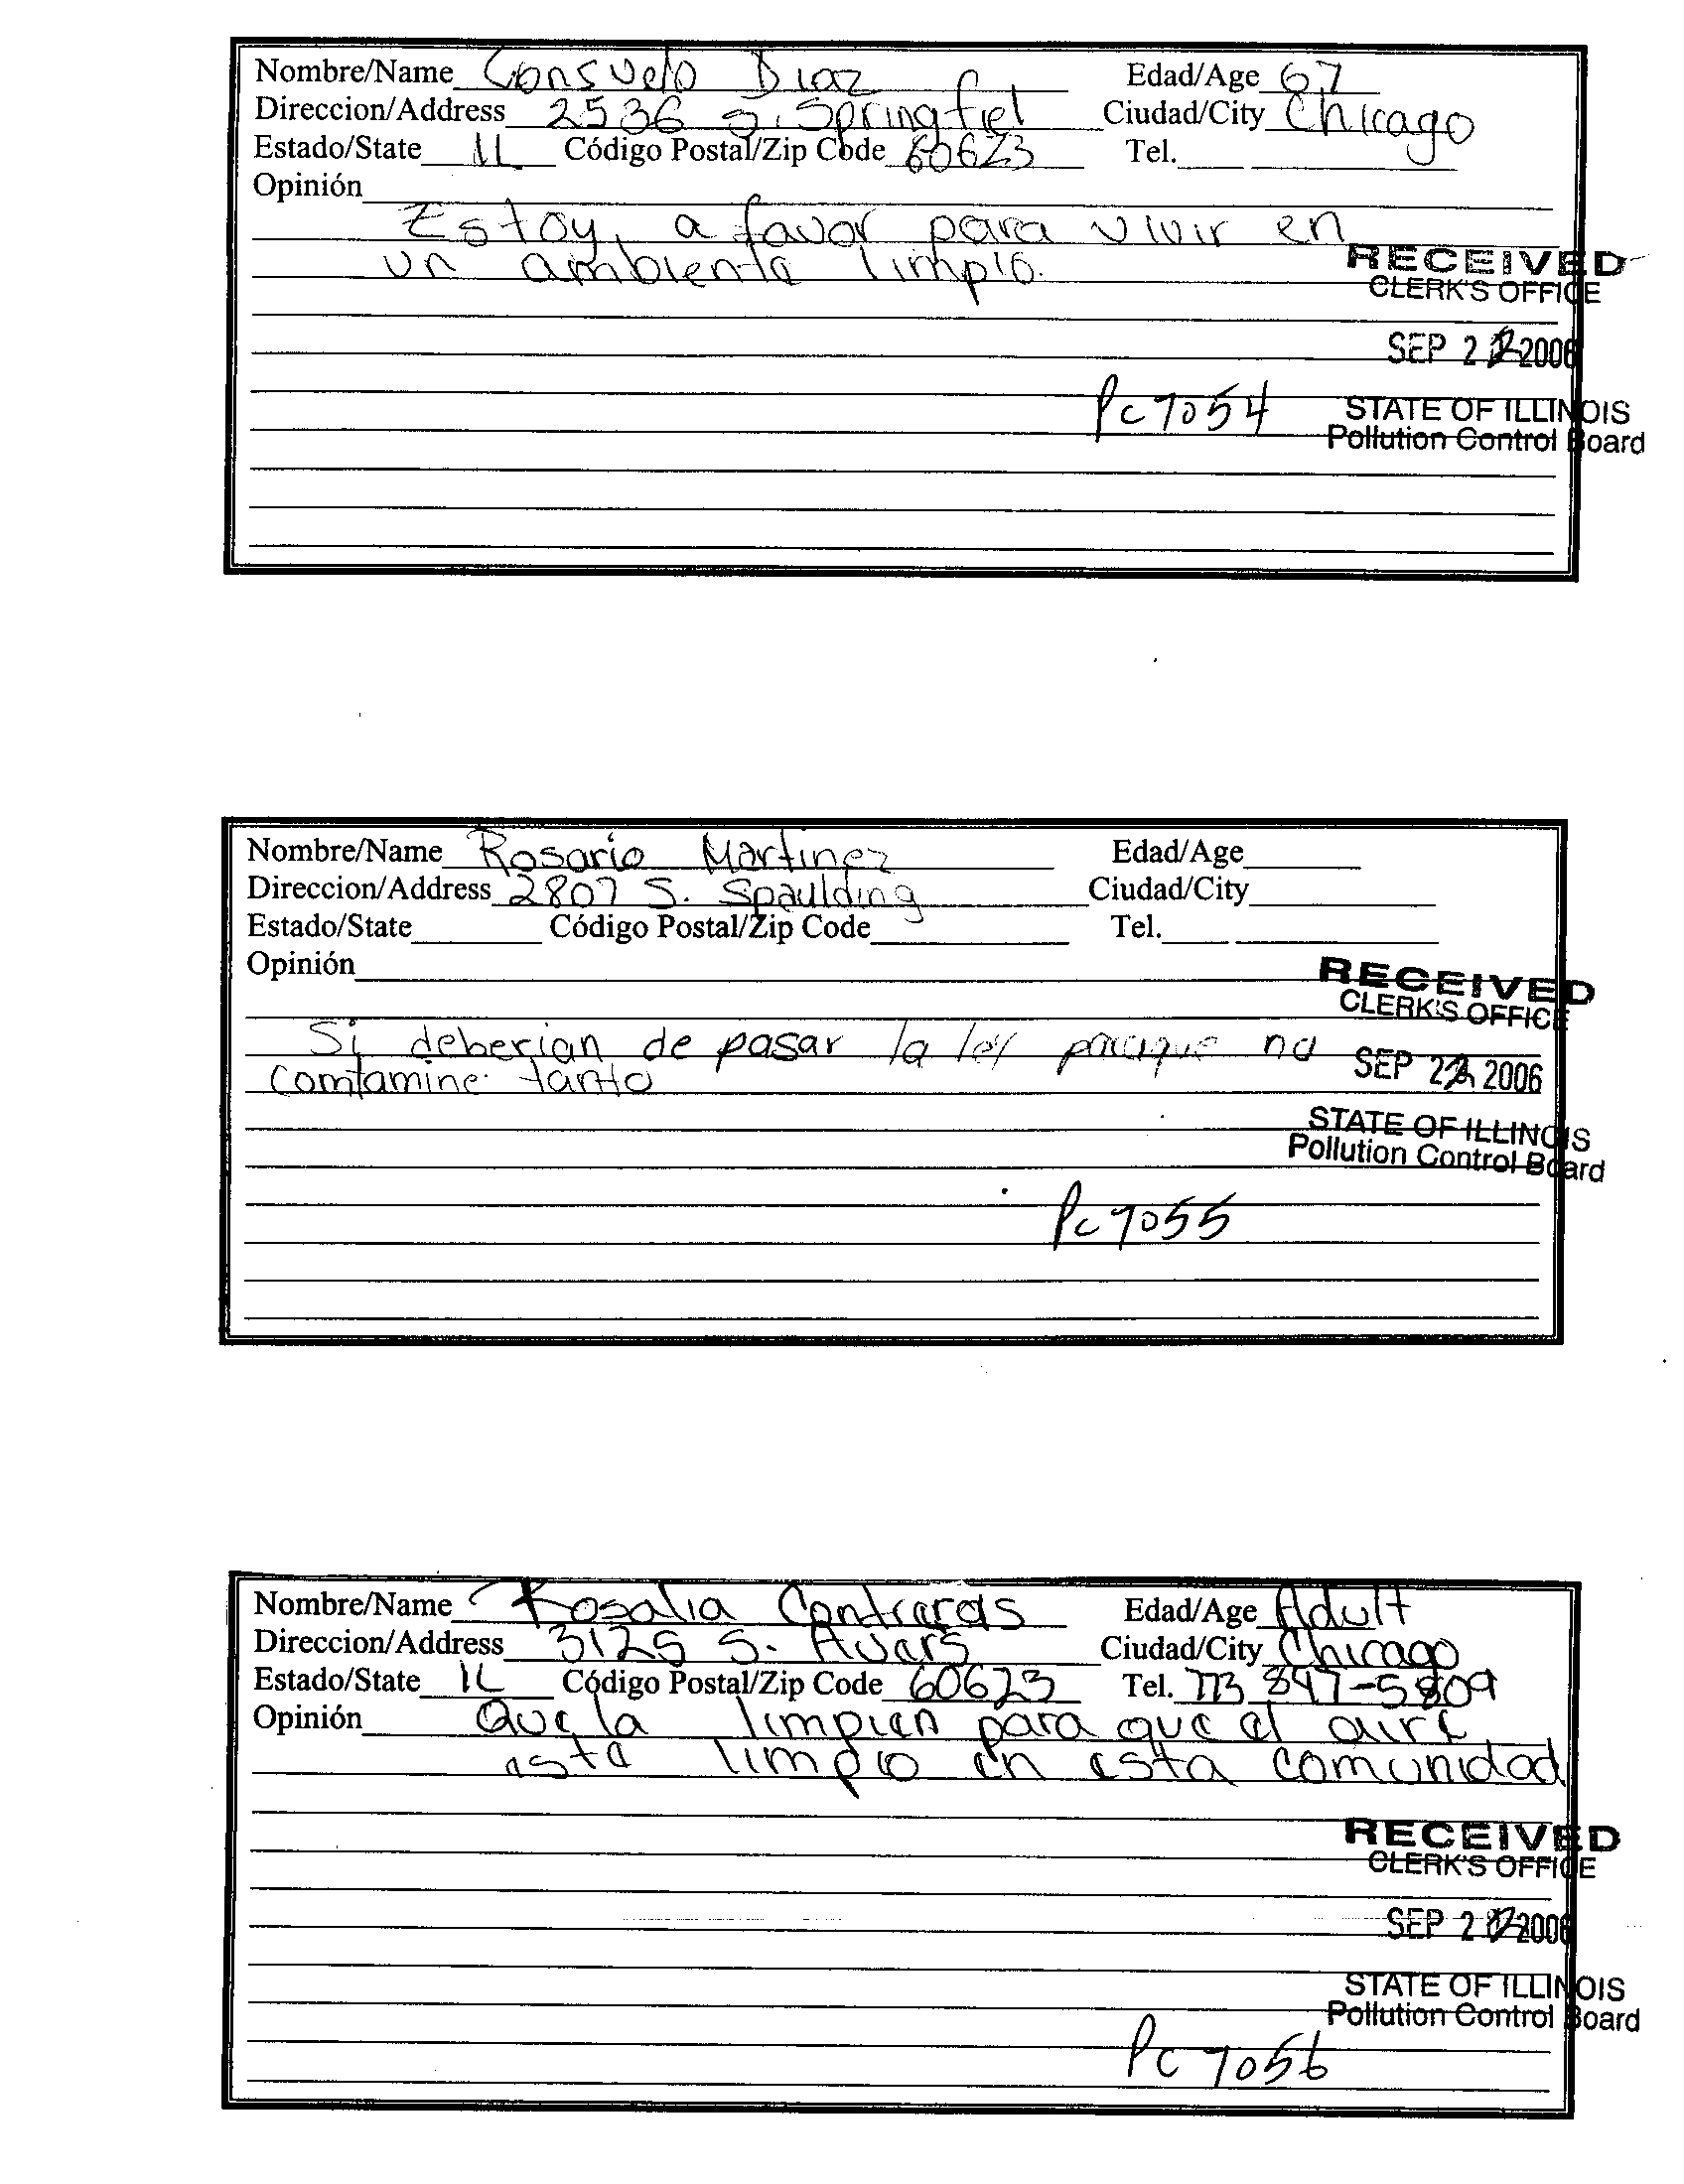 Nombre/Name Consuelo Diaz Edad/Age 67
Direccion/Address 2536 S. Springfiel Ciudad/City Chicago
Estado/State IL Código Postal/Zip Code 60623 Tel.
Opinión
Estoy, a favor para vivir en
un ambienta limpio.
RECEIVED
CLERK'S OFFICE
SEP 22 2006
PC 7054
STATE OF ILLINOIS
Pollution Control Board
Nombre/Name Rosario Martinez Edad/Age
Direccion/Address 2807 S. Spaulding Ciudad/City
Estado/State Código Postal/Zip Code Tel.
Opinión
RECEIVED
CLERK'S OFFICE
Si deberian de pasar la ley paraque no
Comtamine tanto
SEP 22 2006
STATE OF ILLINOIS
Pollution Control Board
PC 7055
Nombre/Name Rosalia Contraras Edad/Age Adult
Direccion/Address 3125 S. Avars Ciudad/City Chicago
Estado/State IL Código Postal/Zip Code 60623 Tel. 773 847-5809
Opinión Que la limpien para que el aire
esta limpio en esta comunidad
RECEIVED
CLERK'S OFFICE
SEP 22 2006
STATE OF ILLINOIS
Pollution Control Board
PC 7056